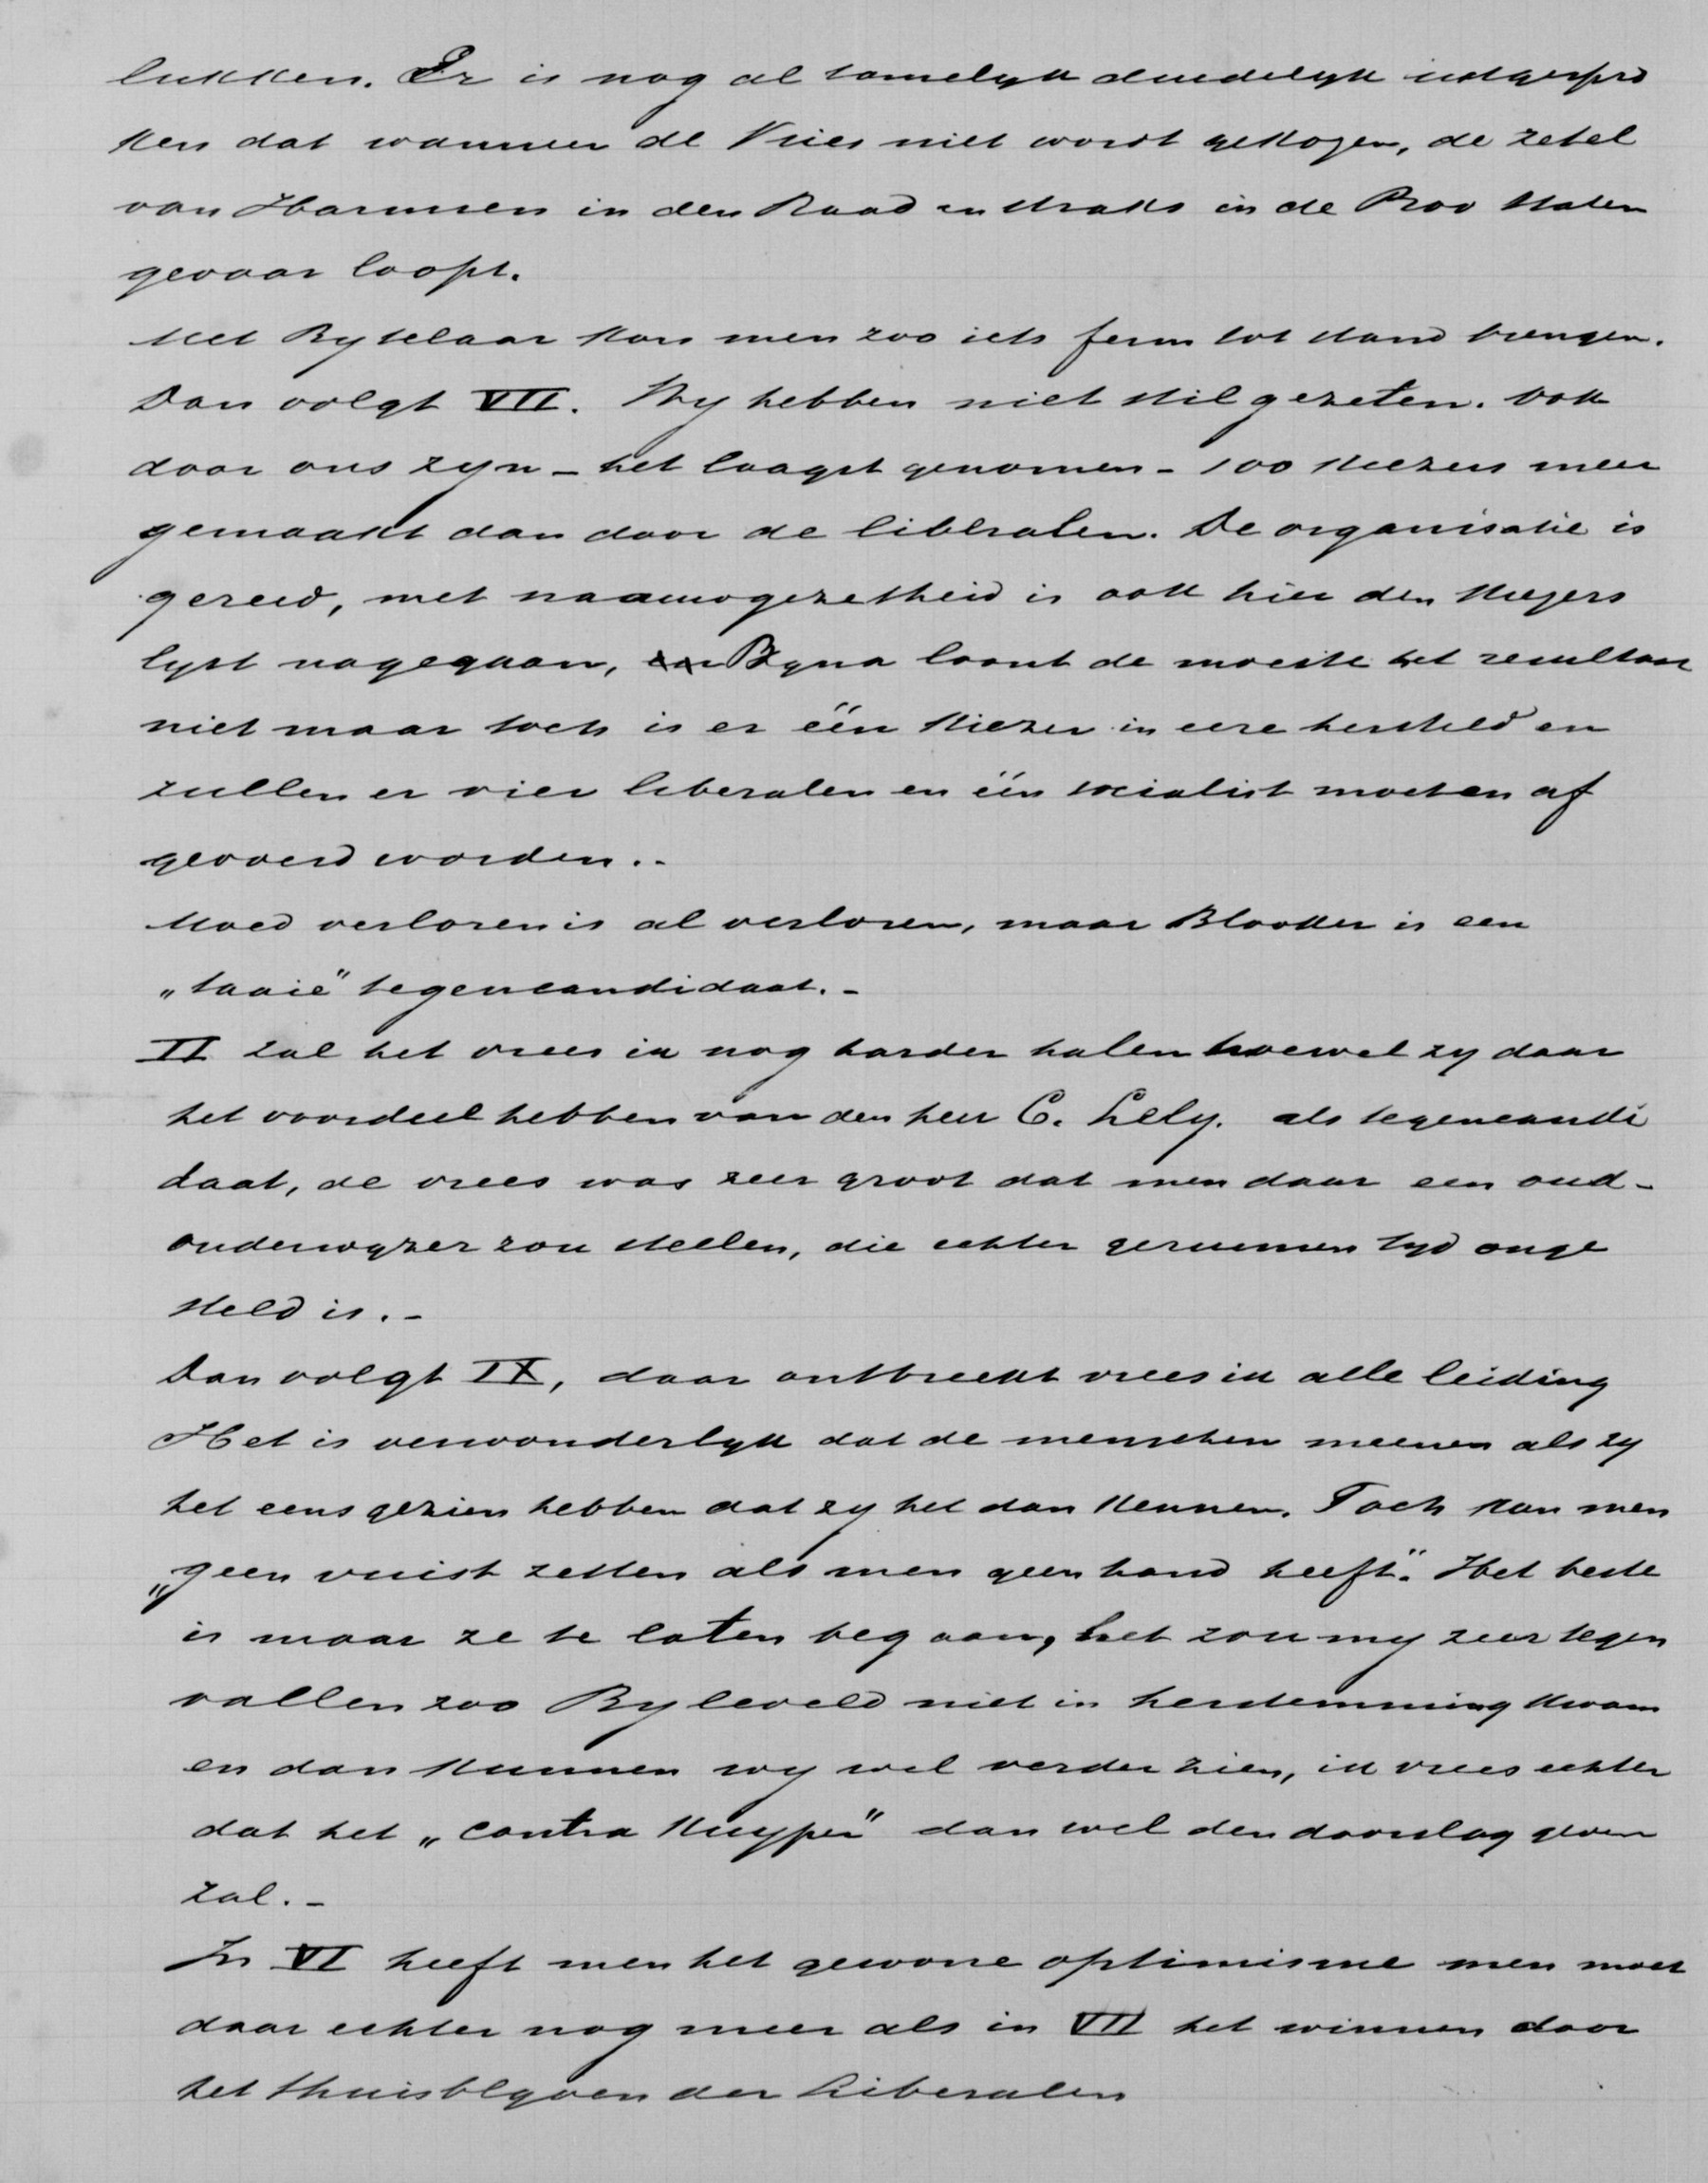 lukken. Er is nog al tamelyk duidelyk uitgespro
ken dat wanneer de Vries niet wordt gekozen, de zetel
van Harmsen in den Raad en straks in de Prov Staten
gevaar loopt.
Met Bytelaar kon men zoo iets ferm tot stand brengen.
Dan volgt VII. Wy hebben niet stil gezeten. Ook
door ons zyn - het laagst genomen - 100 kiezers meer
gemaakt dan door de liberalen. De organisatie is
gereed, met nauwgezetheid is ook hier den kiezers
lyst nagegaan, Byna loont de moeite het resultaat
niet maar toch is er één kiezer in eere hersteld en
zullen er vier liberalen en één socialist moeten af
gevoerd worden..-
Moed verloren is al verloren, maar Blooker is een
„taaie" tegencandidaat.-
II zal het vrees ik nog harder halen hoewel zy daar
het voordeel hebben van den heer C. Lely. als tegencandi
daat, de vrees was zeer groot dat men daar een oud-
onderwyzer zou stellen, die echter geruimen tyd onge
steld is.-
Dan volgt IX, daar ontbreekt vrees ik alle leiding
Het is verwonderlyk dat de menschen meenen als zy
het eens gezien hebben dat zy het dan kennen. Toch kan men
„geen vuist zetten als men geen hand heeft". Het beste
is maar ze te laten begaan, het zou my zeer tegen
vallen zoo Byleveld niet in herstemming kwam
en dan kunnen wy wel verder zien, ik vrees echter
dat het „contra Kuyper" dan wel den doorslag geven
zal.-
In VI heeft men het gewone optimisme men moet
daar echter nog meer als in VII het winnen door
het thuisblyven der Liberalen